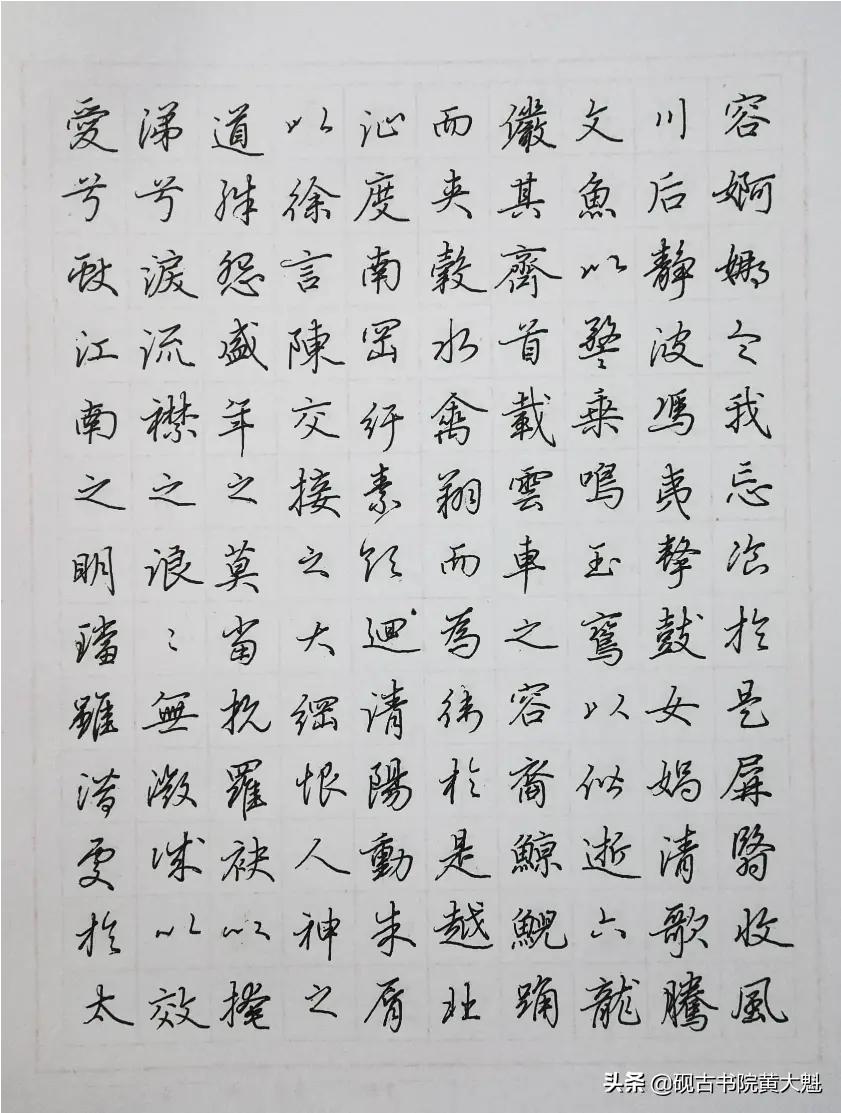 容婀娜令我忘飡於是屏翳收風
川后静波馮夷擊鼓女媧清歌騰
文魚以警乘鳴玉鸞以偕逝六龍
儼其齊首載雲車之容裔鯨鯢踊
而夾轂水禽翔而為衛於是越北
沚度南岡紆素領迴清陽動朱脣
以徐言陳交接之大綱恨人神之
道殊怨盛年之莫當抗羅袂以掩
涕兮淚流襟之浪〻無微誠以效
愛兮獻江南之明璫雖潛處於太
头条 @砚古书院黄大魁